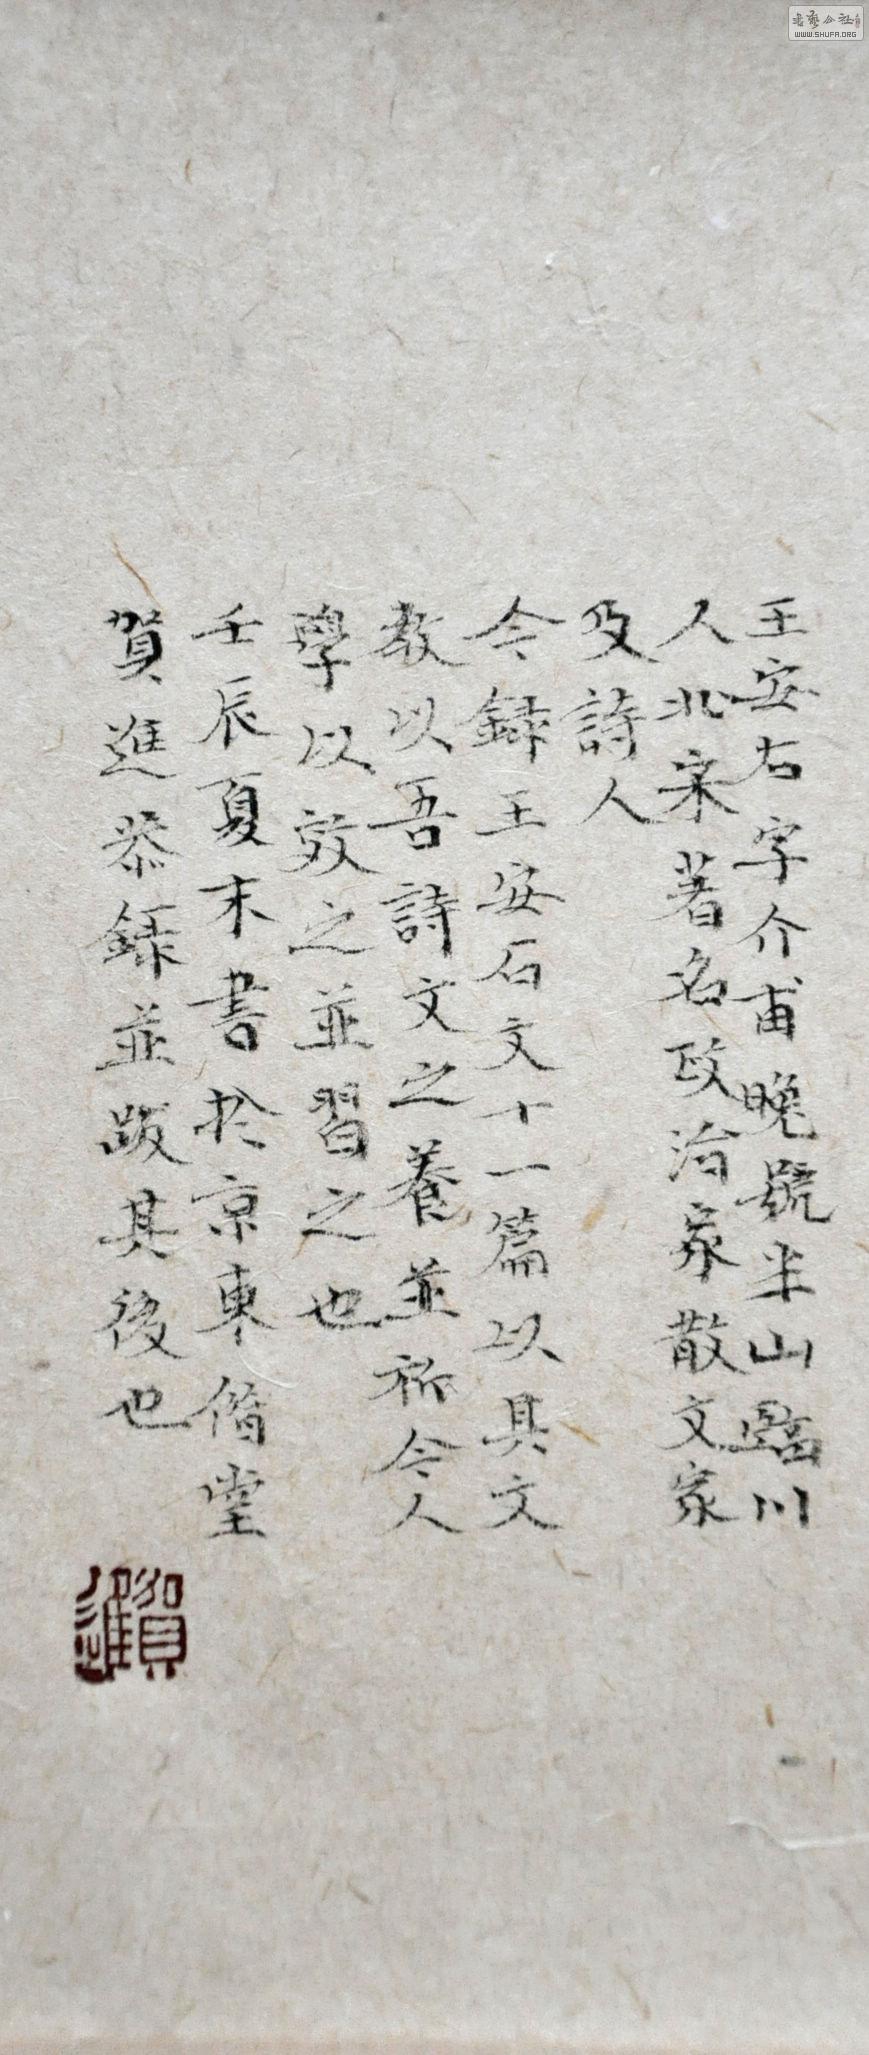 王安石字介甫晚號半山臨川
人北宋著名政治家散文家
及詩人
今録王安石文十一篇以具文
教以吾詩文之養並祈令人
學以效之並習之也
壬辰夏末書於京東偕堂
賀進恭録並跋其後也
賀進
書藝公社
WWW.SHUFA.ORG